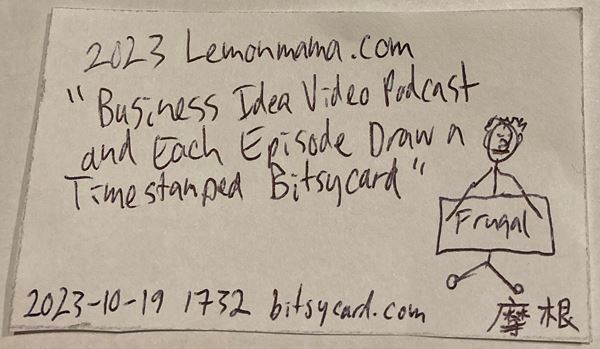 2023 Lemonmama.com
"Business Idea Video Podcast
and Each Episode Drawn
Timestamped Bitsycard"
Frugal
2023-10-19 1732 bitsycard.com 摩根